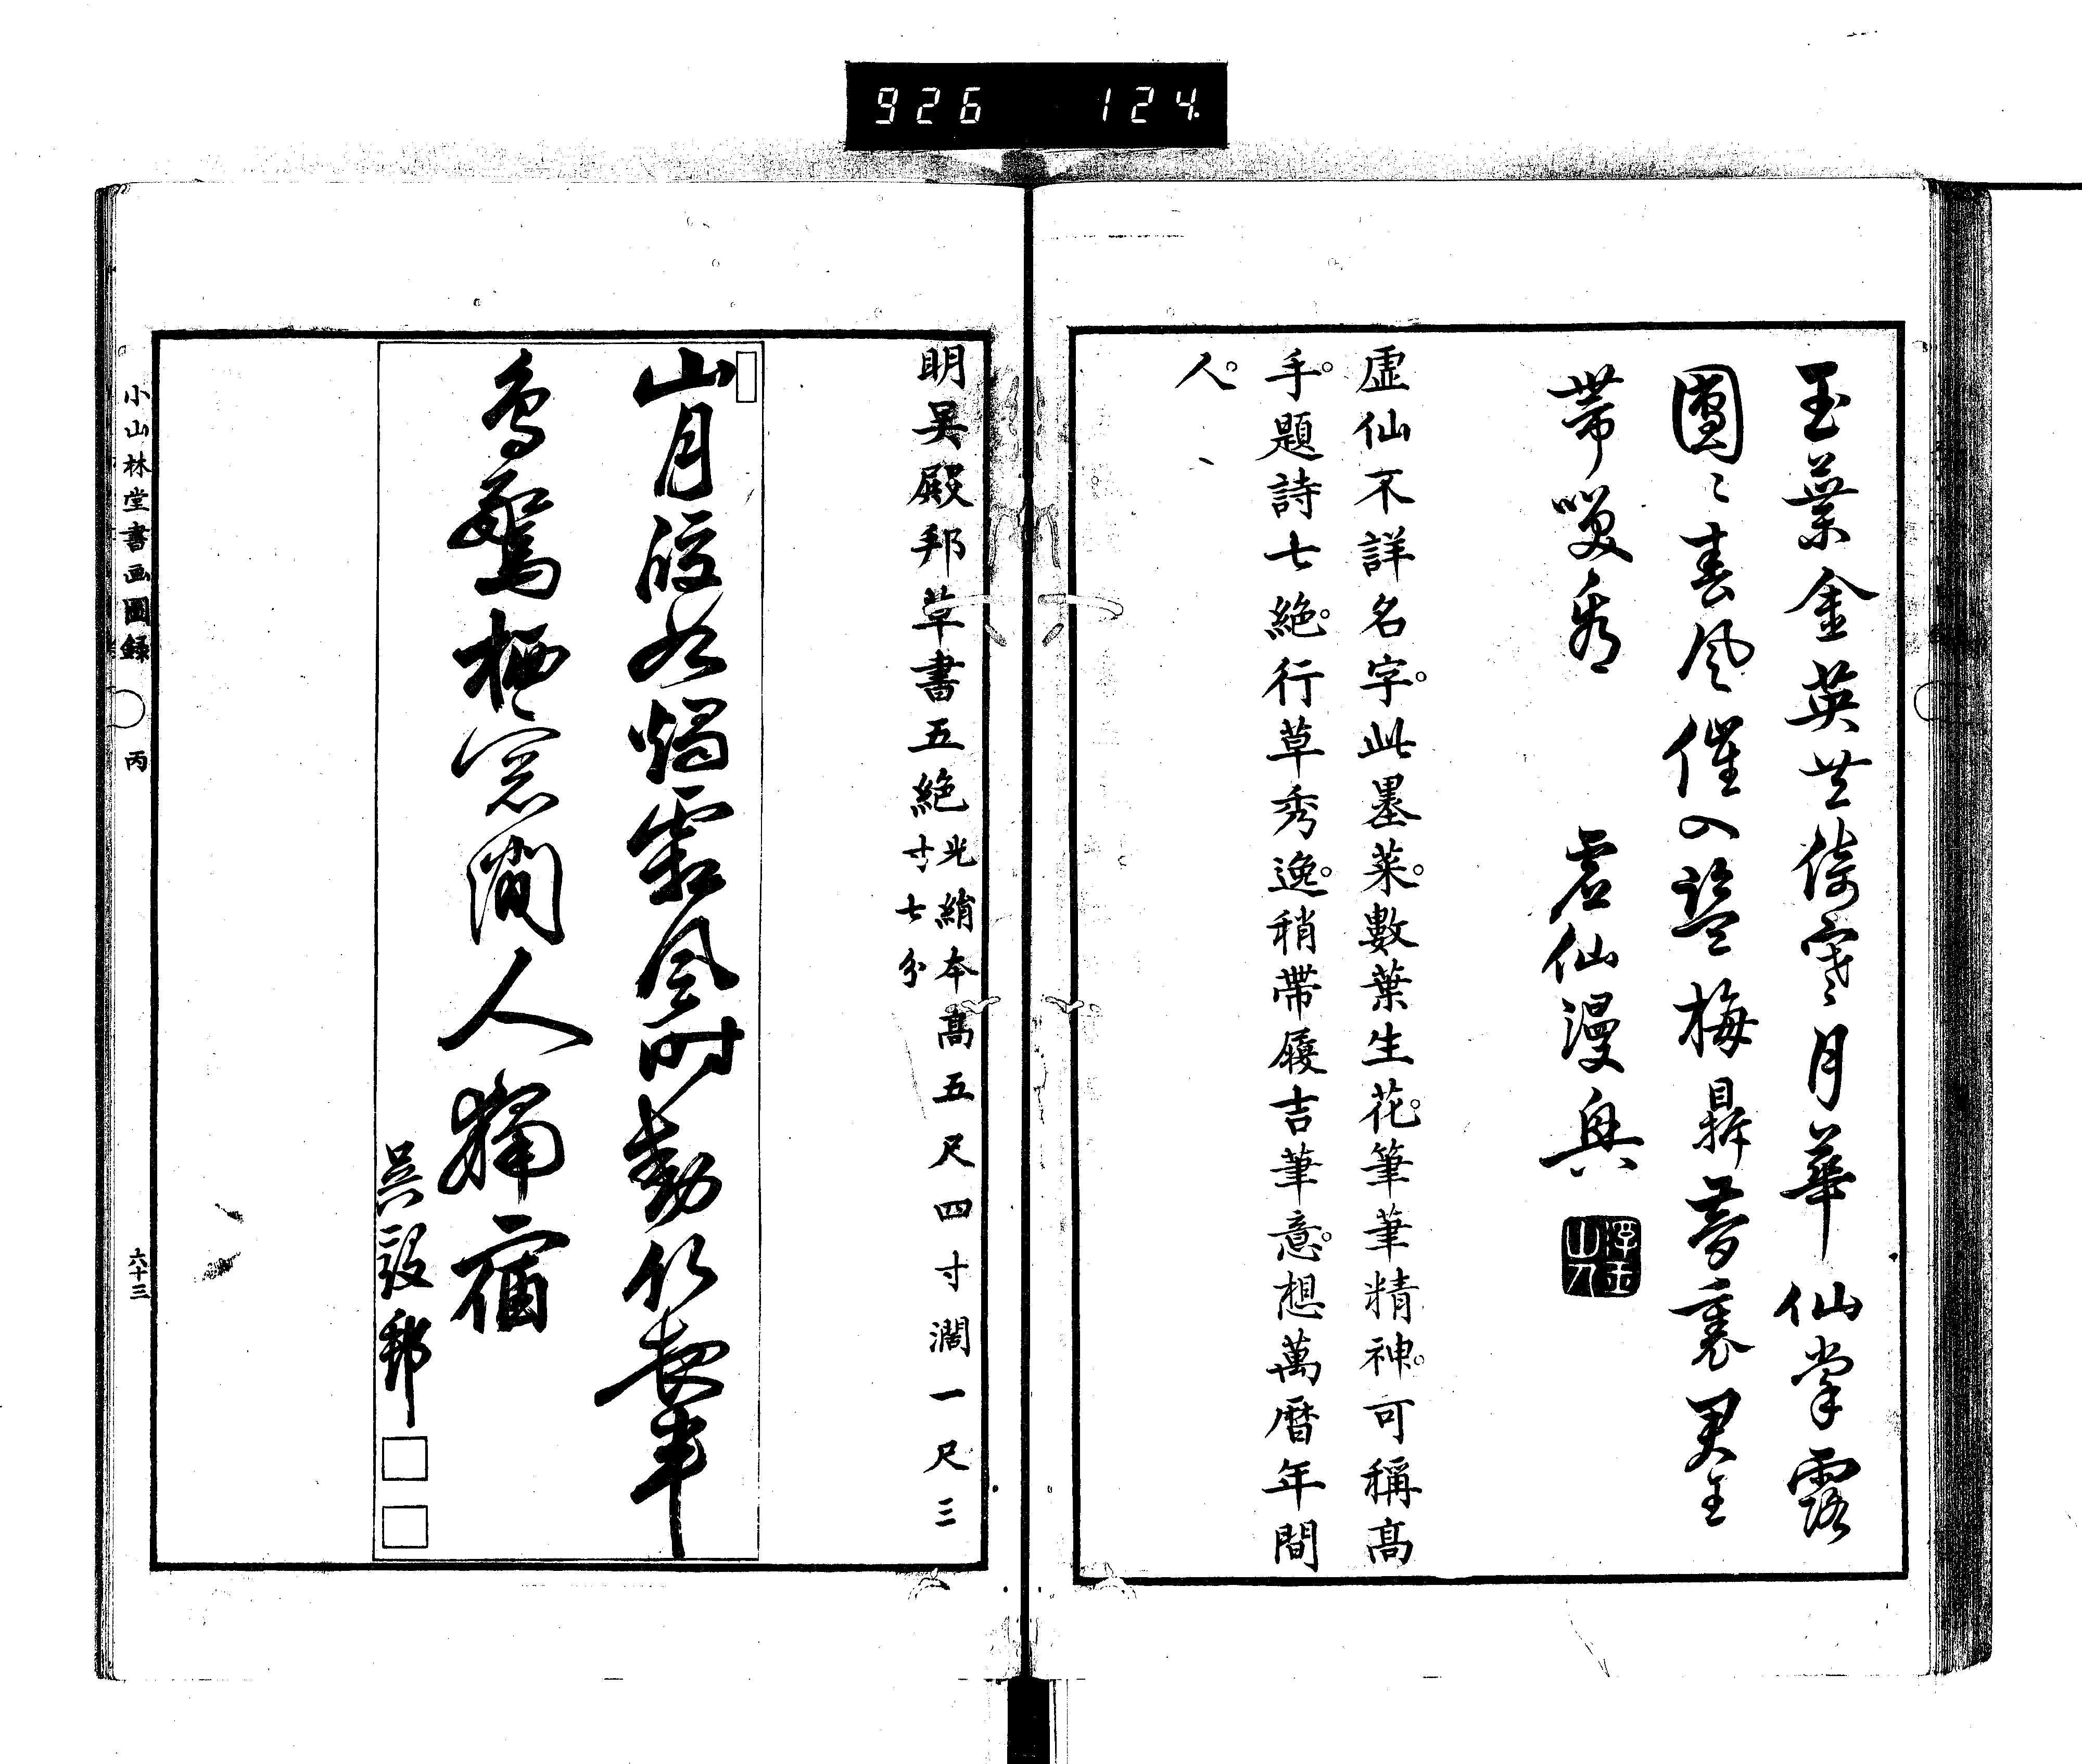 926 124
玉葉金英世倚寒月華仙掌露
團々春風催入鹽梅鼎夢裏君王
帶嗅看 虚仙漫興
虚仙不詳名字。此墨菜。數葉生花。筆筆精神。可稱高
手。題詩七絶。行草秀逸。稍帶履吉筆意。想萬曆年間
人。
明吴殿邦草書五絶 光綃本高五尺四寸濶一尺三
寸七分
山月皎如燭霜風時動竹夜半
鳥驚栖窓間人獨宿
吴殿邦
小山林堂書画圖録 丙 六十三